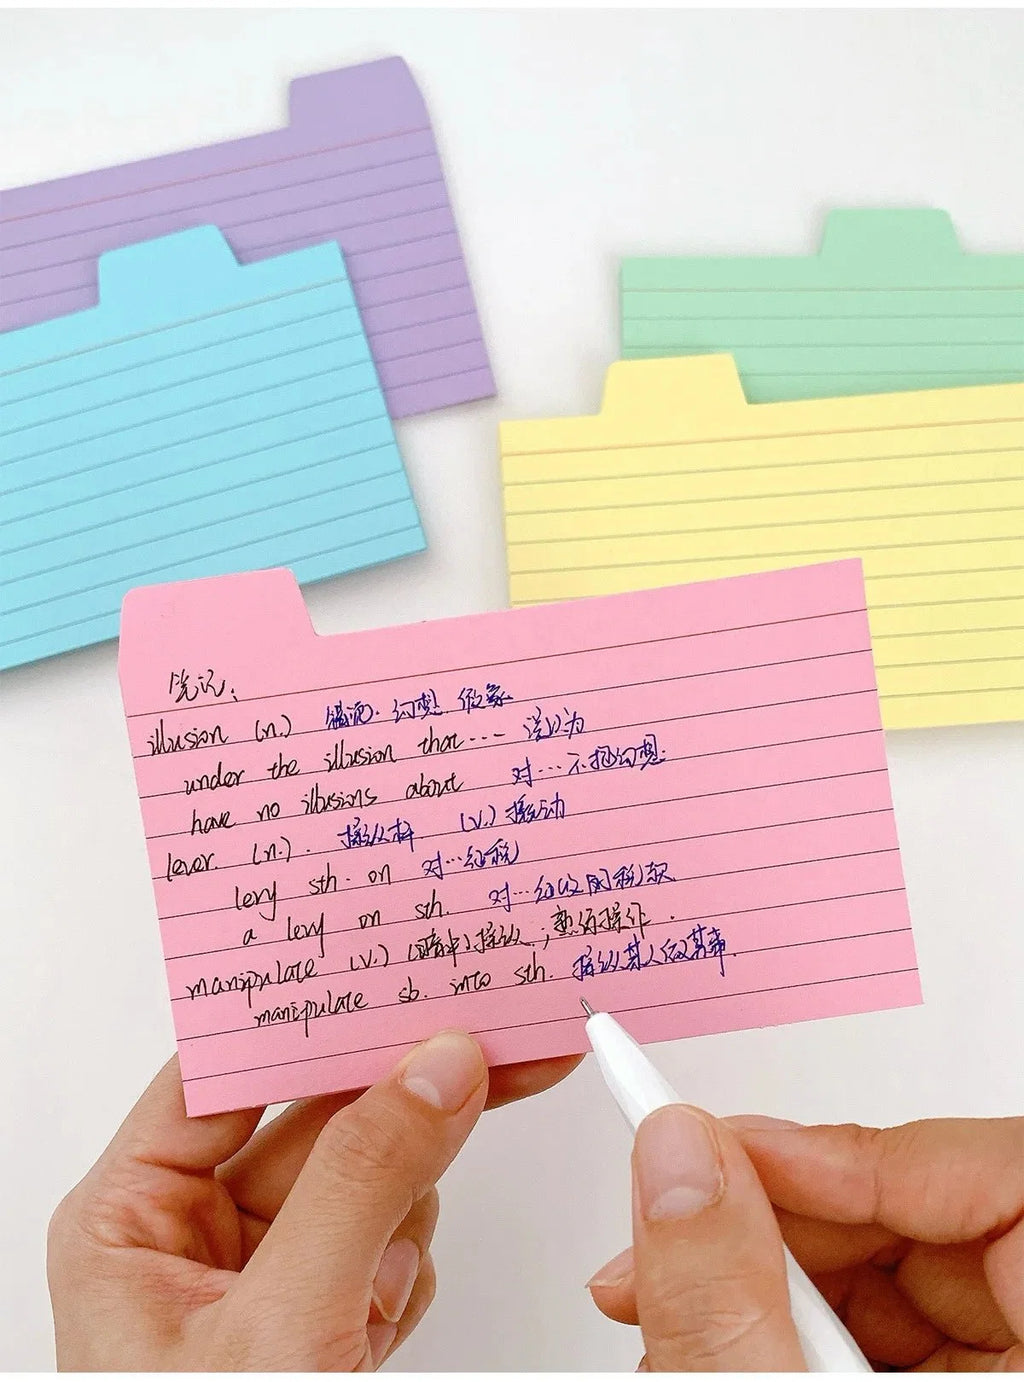 笔记:
illusion (n.) 错觉. 幻想 假象
under the illusion that... 误以为
have no illusions about 对…不抱幻想
lever (n.). 操纵杆 (v.) 撬动
levy sth. on 对…征税
a levy on sth. 对…征收的税款
manipulate (v.) (暗中)操纵;熟练操作.
manipulate sb. into sth. 操纵某人做某事.